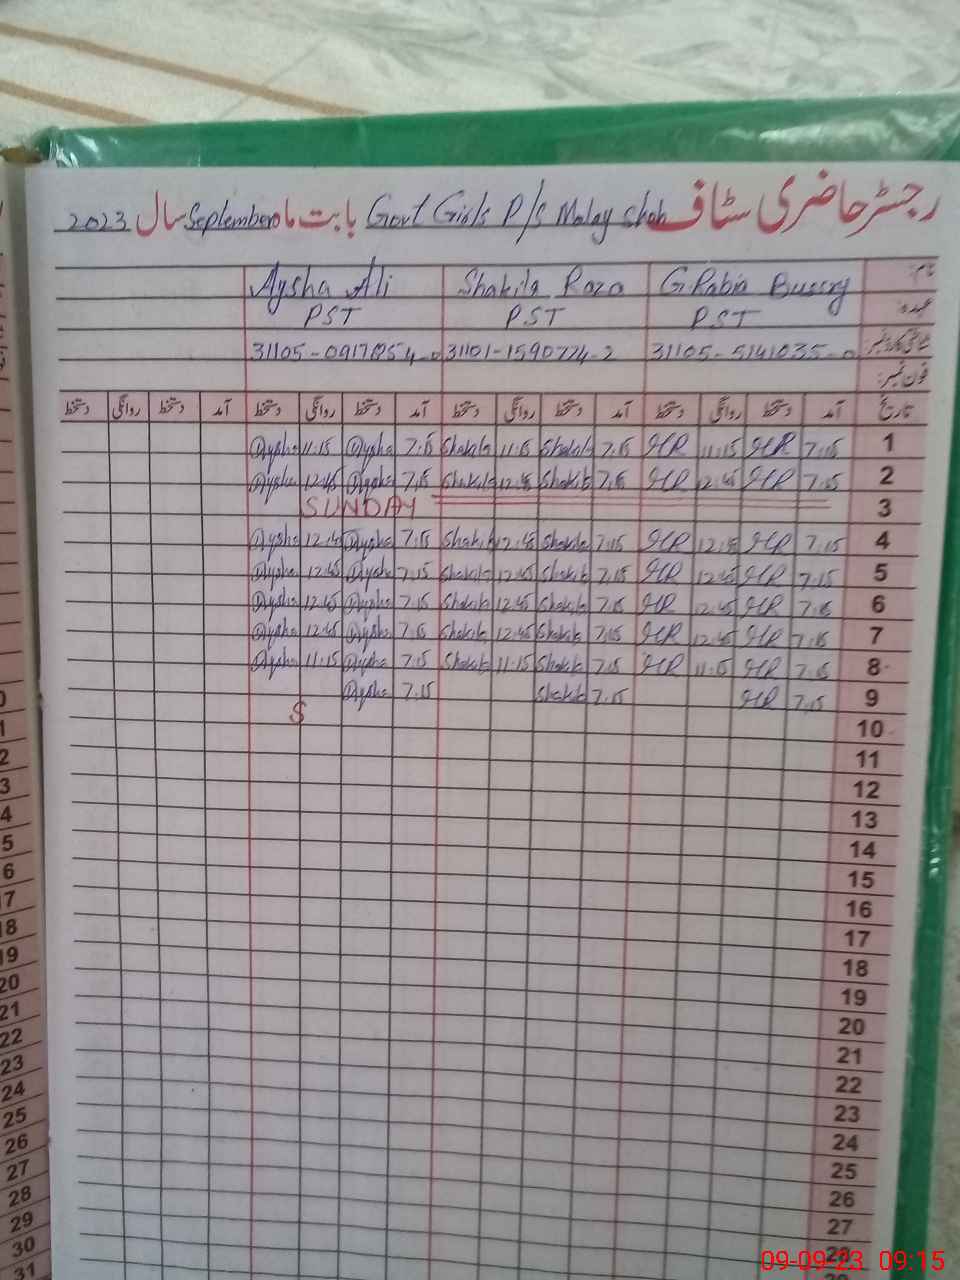 رجسٹر حاضری سٹاف Govt Girls P/S Malay Shah بابت ماہ September سال 2023
نام: G Rabia Shakila Raza Aysha Ali
عہدہ PST PST PST
شناختی کارڈ نمبر: 31105-5141035-0 31101-1590774-2
فون نمبر:
تاریخ آمد دستخط روانگی دستخط آمد دستخط روانگی دستخط آمد دستخط روانگی دستخط آمد دستخط روانگی دستخط
1 7:15 GR 11:15 GR 7:15 Shakila 11:15 Shakila 7:15 Aysha 11:15 Aysha
2 7:15 GR 12:45 GR 7:15 Shakila 12:45 Shakila 7:15 Aysha 12:45 Aysha
3 SUNDAY
4 7:15 GR 12:45 GR 7:15 Shakila 12:45 Shakila 7:15 Aysha 12:45 Aysha
5 7:15 GR 12:45 GR 7:15 Shakila 12:45 Shakila 7:15 Aysha 12:45 Aysha
6 7:15 GR 12:45 GR 7:15 Shakila 12:45 Shakila 7:15 Aysha 12:45 Aysha
7 7:15 GR 12:45 GR 7:15 Shakila 12:45 Shakila 7:15 Aysha 12:45 Aysha
8 7:15 GR 11:15 GR 7:15 Shakila 11:15 Shakila 7:15 Aysha 11:15 Aysha
9 7:15 GR 7:15 Shakila 7:15 Aysha
10 S
11
12
13
14
15
16
17
18
19
20
21
22
23
24
25
26
27
28
09-09-23 09:15